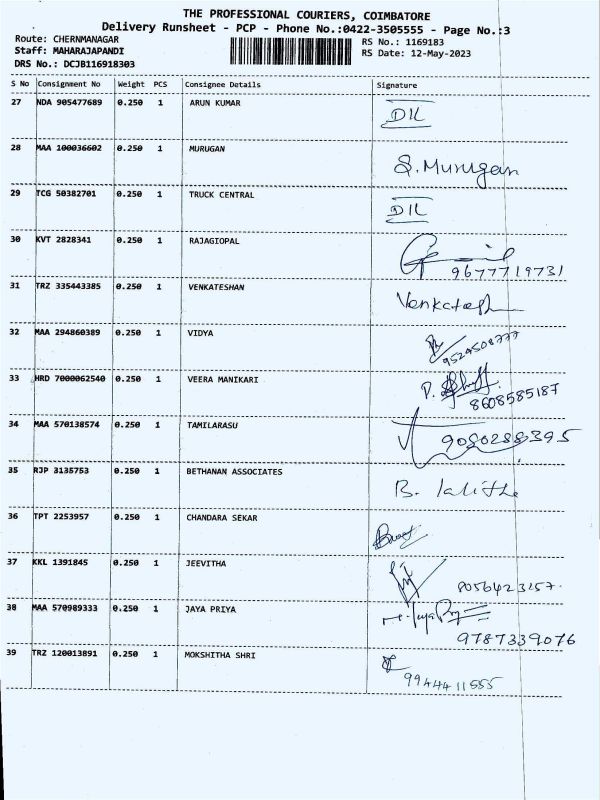 THE PROFESSIONAL COURIERS, COIMBATORE
Delivery Runsheet - PCP - Phone No.:0422-3505555 - Page No.:3
Route: CHERNMANAGAR
RS No.: 1169183
Staff: MAHARAJAPANDI
RS Date: 12-May-2023
DRS No.: DCJB116918303
S No Consignment No Weight PCS Consignee Details Signature
27 NDA 905477689 0.250 1 ARUN KUMAR DIL
28 MAA 100036602 0.250 1 MURUGAN S. Murugan
29 TCG 50382701 0.250 1 TRUCK CENTRAL DIL
30 KVT 2828341 0.250 1 RAJAGIOPAL 9677719731
31 TRZ 335443385 0.250 1 VENKATESHAN Venkatesh
32 MAA 294860389 0.250 1 VIDYA 9524508777
33 HRD 7000062540 0.250 1 VEERA MANIKARI P. 8608585187
34 MAA 570138574 0.250 1 TAMILARASU 9080288395
35 RJP 3135753 0.250 1 BETHANAN ASSOCIATES B. lalitha
36 TPT 2253957 0.250 1 CHANDARA SEKAR
37 KKL 1391845 0.250 1 JEEVITHA 8056423157.
38 MAA 570989333 0.250 1 JAYA PRIYA 9787339076
39 TRZ 120013891 0.250 1 MOKSHITHA SHRI 9944411555